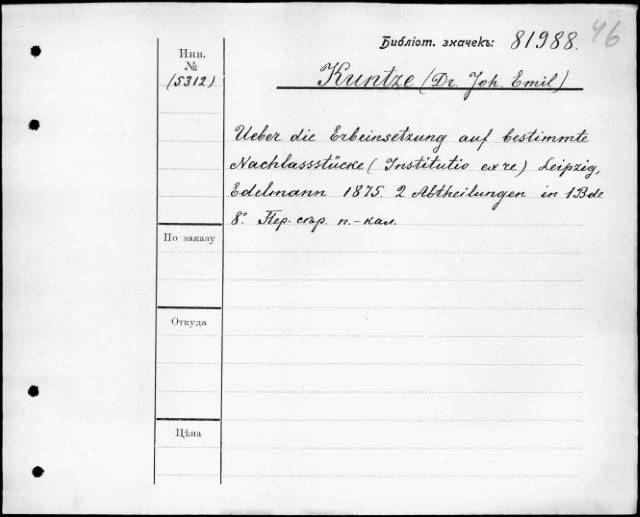 Библіот. значекъ: 81988. 46
Инв.
№
(5312)
Kuntze (Dr. Joh. Emil)
Ueber die Erbeinsetzung auf bestimmte
Nachlassstücke (Institutio ex re) Leipzig,
Edelmann 1875. 2 Abtheilungen in 1 Bde
8° Пер. стр. п.-кал.
По заказу
Откуда
Цѣна